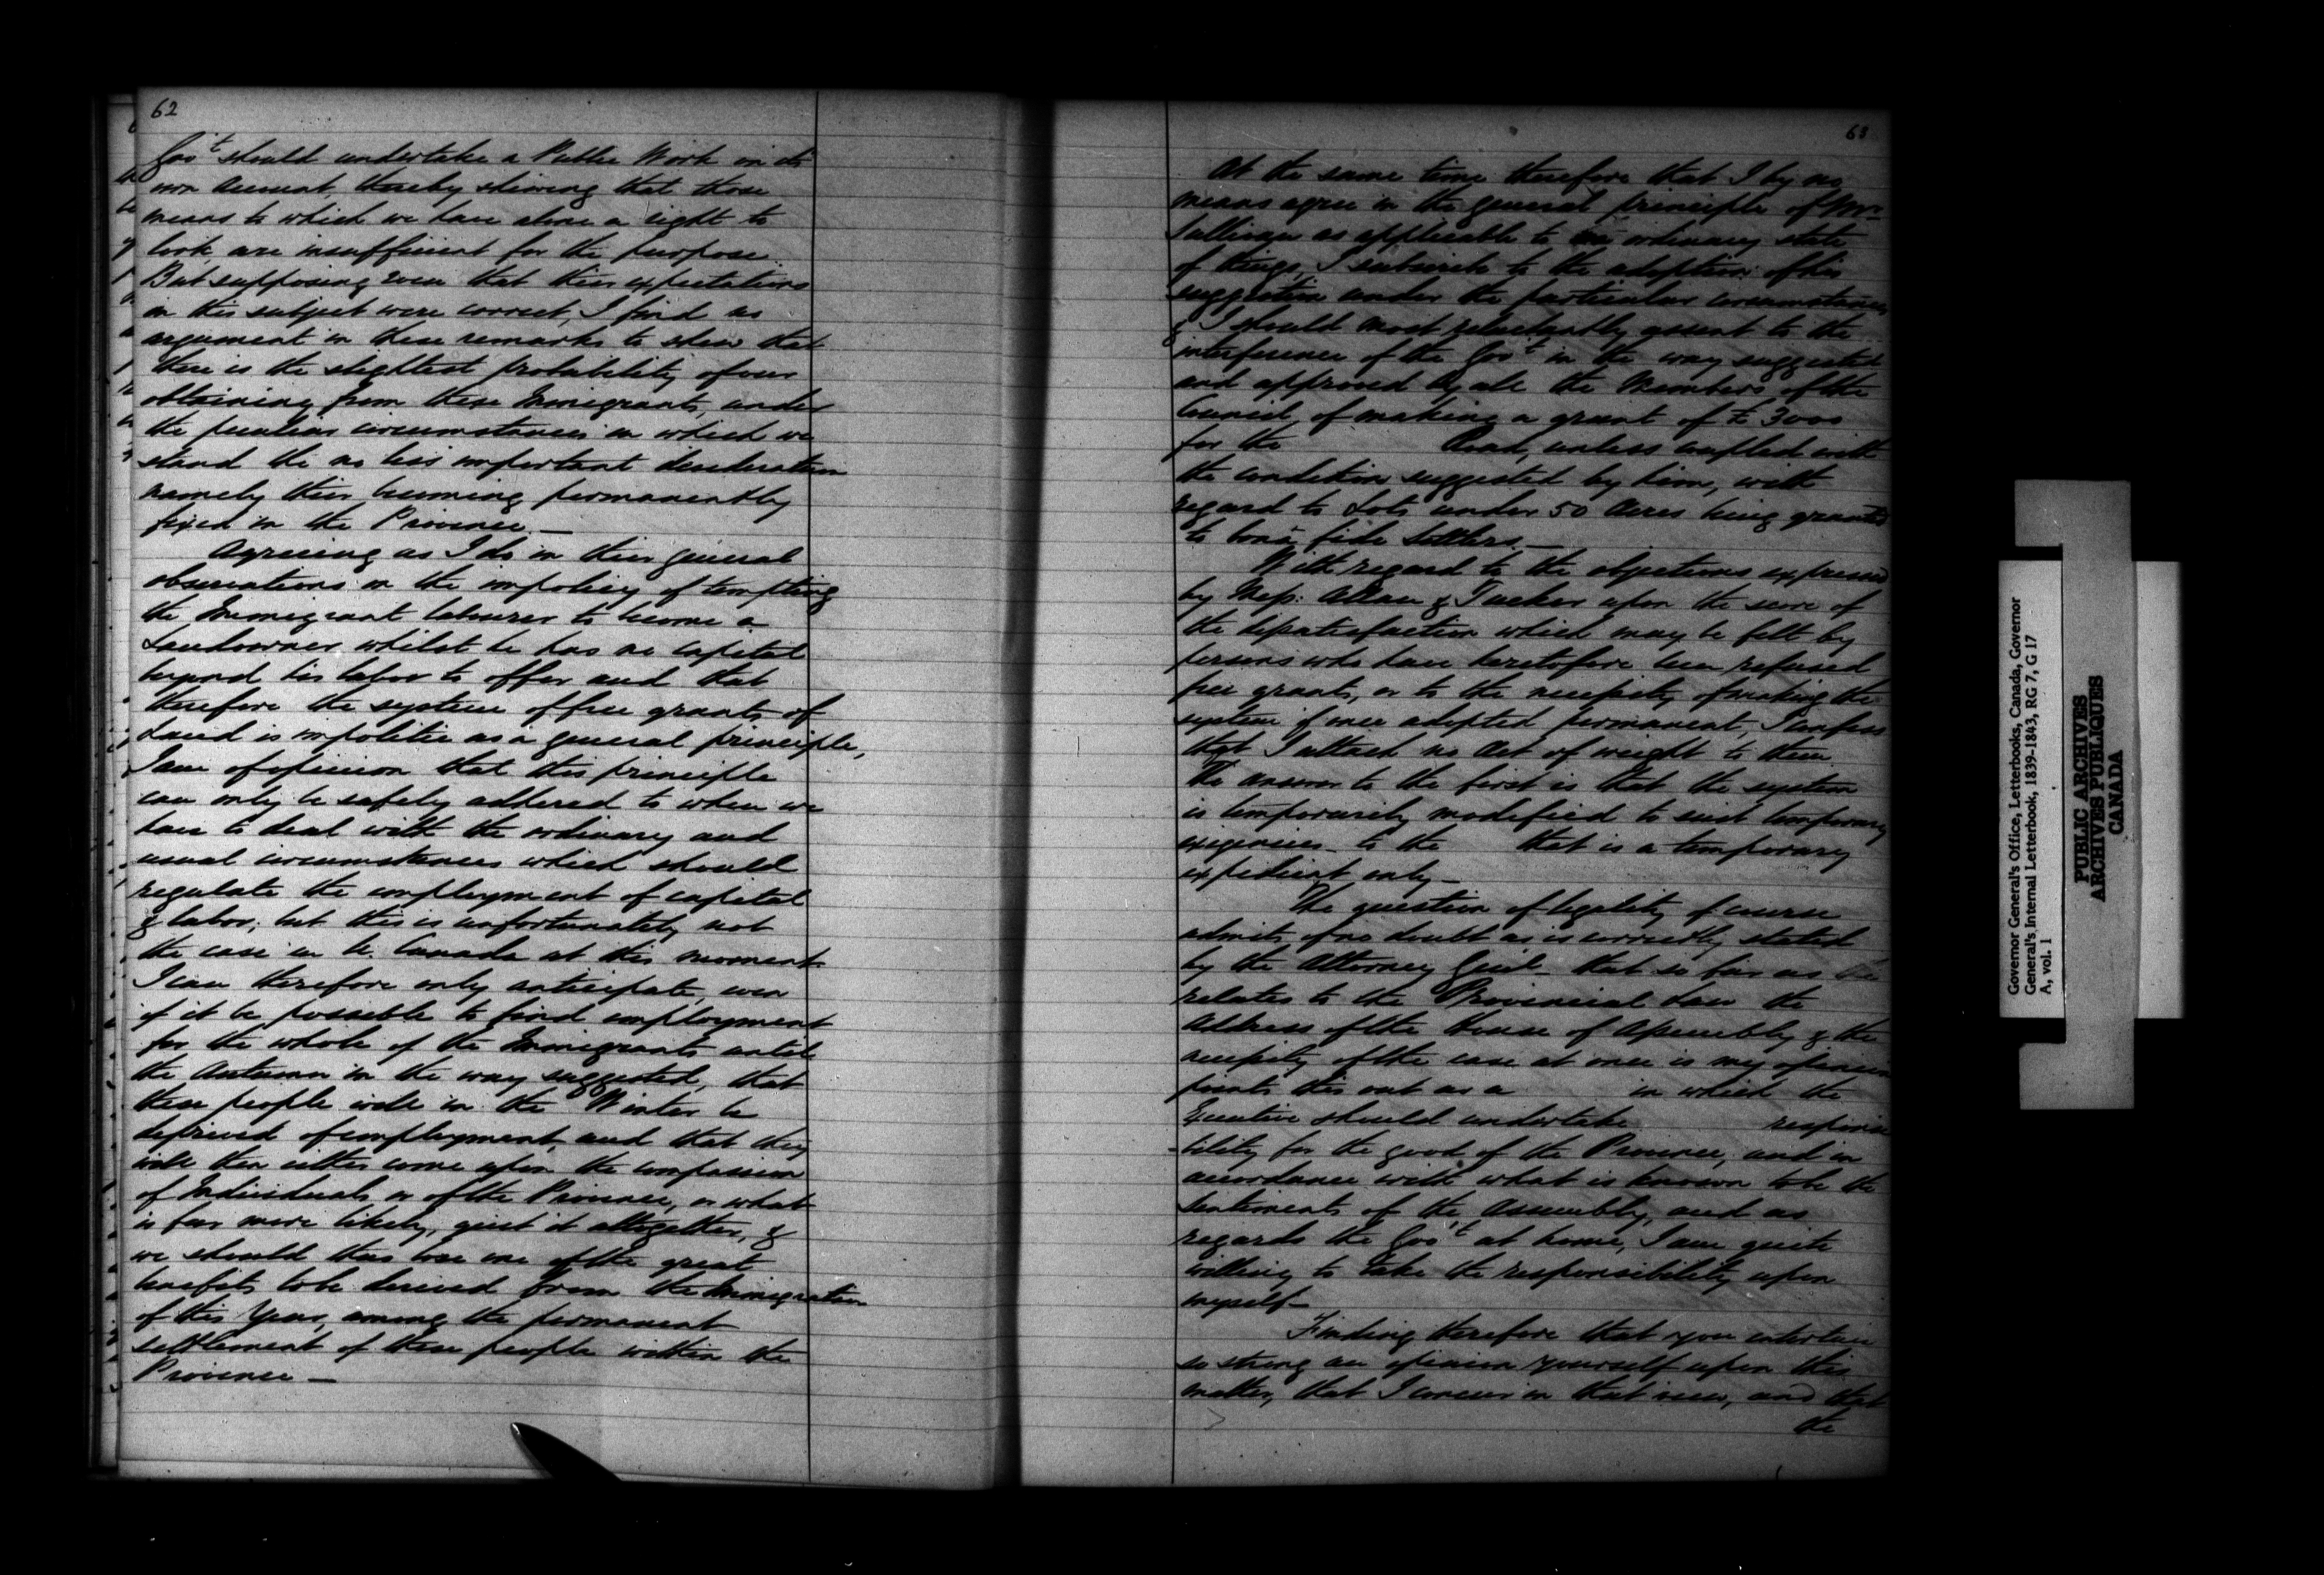 62
Gov.t should undertake a Public Work on its
own account, thereby shewing that those
means to which we have alone a right to
look, are insufficient for the purpose.
But supposing even that their expectations
on this subject were correct, I find no
argument in these remarks to shew that
there is the slightest probability of our
obtaining from these Immigrants, under
the peculiar circumstances in which we
stand the no less important desideratum
namely their becoming permanently
fixed in the Province —
Agreeing as I do in their general
observations on the impolicy of tempting
the Immigrant labourer to become a
Landowner whilst he has no capital
beyond his labor to offer and that
therefore the system of free grants of
Land is impolitic as a general principle,
I am of opinion that this principle
can only be safely adhered to when we
have to deal with the ordinary and
usual circumstances which should
regulate the employment of capital
& labor; but this is unfortunately not
the case in U. Canada at this moment.
I can therefore only anticipate, even
if it be possible to find employment
for the whole of the Immigrants until
the Autumn in the way suggested, that
these people will in the Winter be
deprived of employment, and that they
will then either come upon the compassion
of Individuals or of the Province, or what
is far more likely, quit it altogether, &
we should thus lose one of the great
benefits to be derived from the Immigration
of this Year, among the permanent
settlement of these people within the
Province —
63
At the same time therefore that I by no
means agree in the general principle of Mr.
Sullivan as applicable to an ordinary state
of things, I subscribe to the adoption of his
suggestion under the particular circumstances,
& I should most reluctantly assent to the
interference of the Gov.t in the way suggested
and approved by all the Members of the
Council, of making a grant of £3000
for the Road, unless coupled with
the condition suggested by him, with
regard to Lots under 50 Acres being granted
to bonâ fide Settlers. —
With regard to the objections expressed
by Mess: Allan & Tucker upon the score of
the dissatisfaction which may be felt by
persons who have heretofore been refused
free grants, or to the necessity of making the
system if once adopted permanent, I confess
that I attach no sort of weight to them
The answer to the first is that the system
is temporarily modified to suit temporary
exigencies — to the that is a temporary
expedient only —
The question of legality of course
admits of no doubt as is correctly stated
by the Attorney Genl — that so far as
relates to the Provincial Law the
Address of the House of Assembly & the
necessity of the case at once in my opinion
points this out as a in which the
Executive should undertake responsi
-bility for the good of the Province, and in
accordance with what is known to be the
sentiments of the Assembly, and as
regards the Gov.t at home, I am quite
willing to take the responsibility upon
myself —
Finding therefore that you entertain
so strong an opinion yourself upon this
matter, that I concur in that view, and that
the
Governor General's Office, Letterbooks, Canada, Governor
General's Internal Letterbook, 1839-1843, RG 7, G 17
A, vol. 1
PUBLIC ARCHIVES
ARCHIVES PUBLIQUES
CANADA